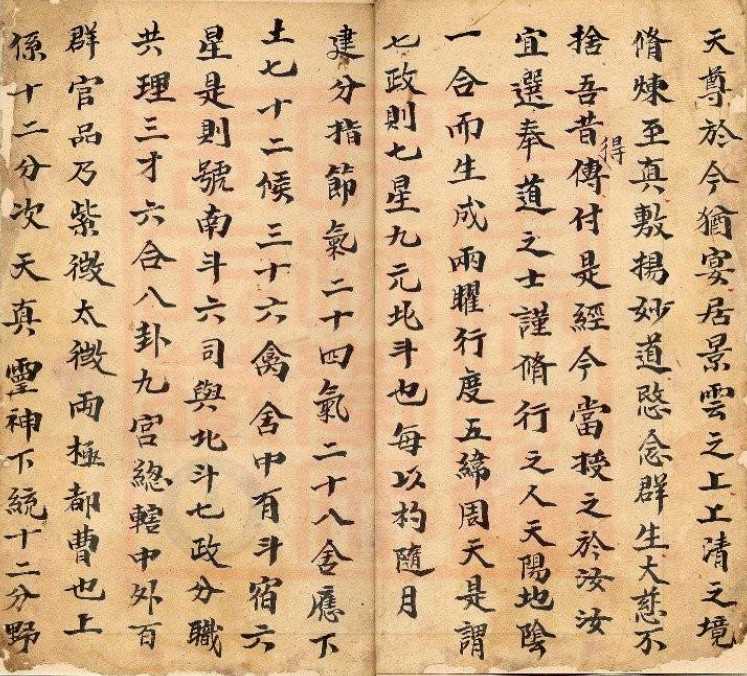 天尊於今猶宴居景雲之上上清之境
脩煉至真敷揚妙道愍念群生大慈不
捨吾昔得傳付是經今當授之於汝汝
宜選奉道之士謹脩行之人天陽地陰
一合而生成兩曜行度五緯周天是謂
七政則七星九元北斗也每以杓隨月
建分指節氣二十四氣二十八舍應下
土七十二候三十六禽舍中有斗宿六
星是則號南斗六司與北斗七政分職
共理三才六合八卦九宮總轄中外百
群官品乃紫微太微兩極都曹也上
係十二分次天真靈神下統十二分野